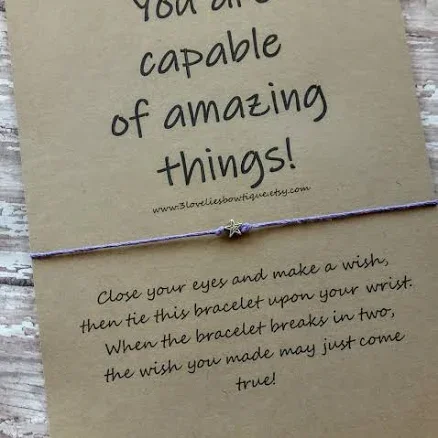 You are
capable
of amazing
things!
www.3loveliesbowtique.etsy.com
Close your eyes and make a wish,
then tie this bracelet upon your wrist.
When the bracelet breaks in two,
the wish you made may just come
true!